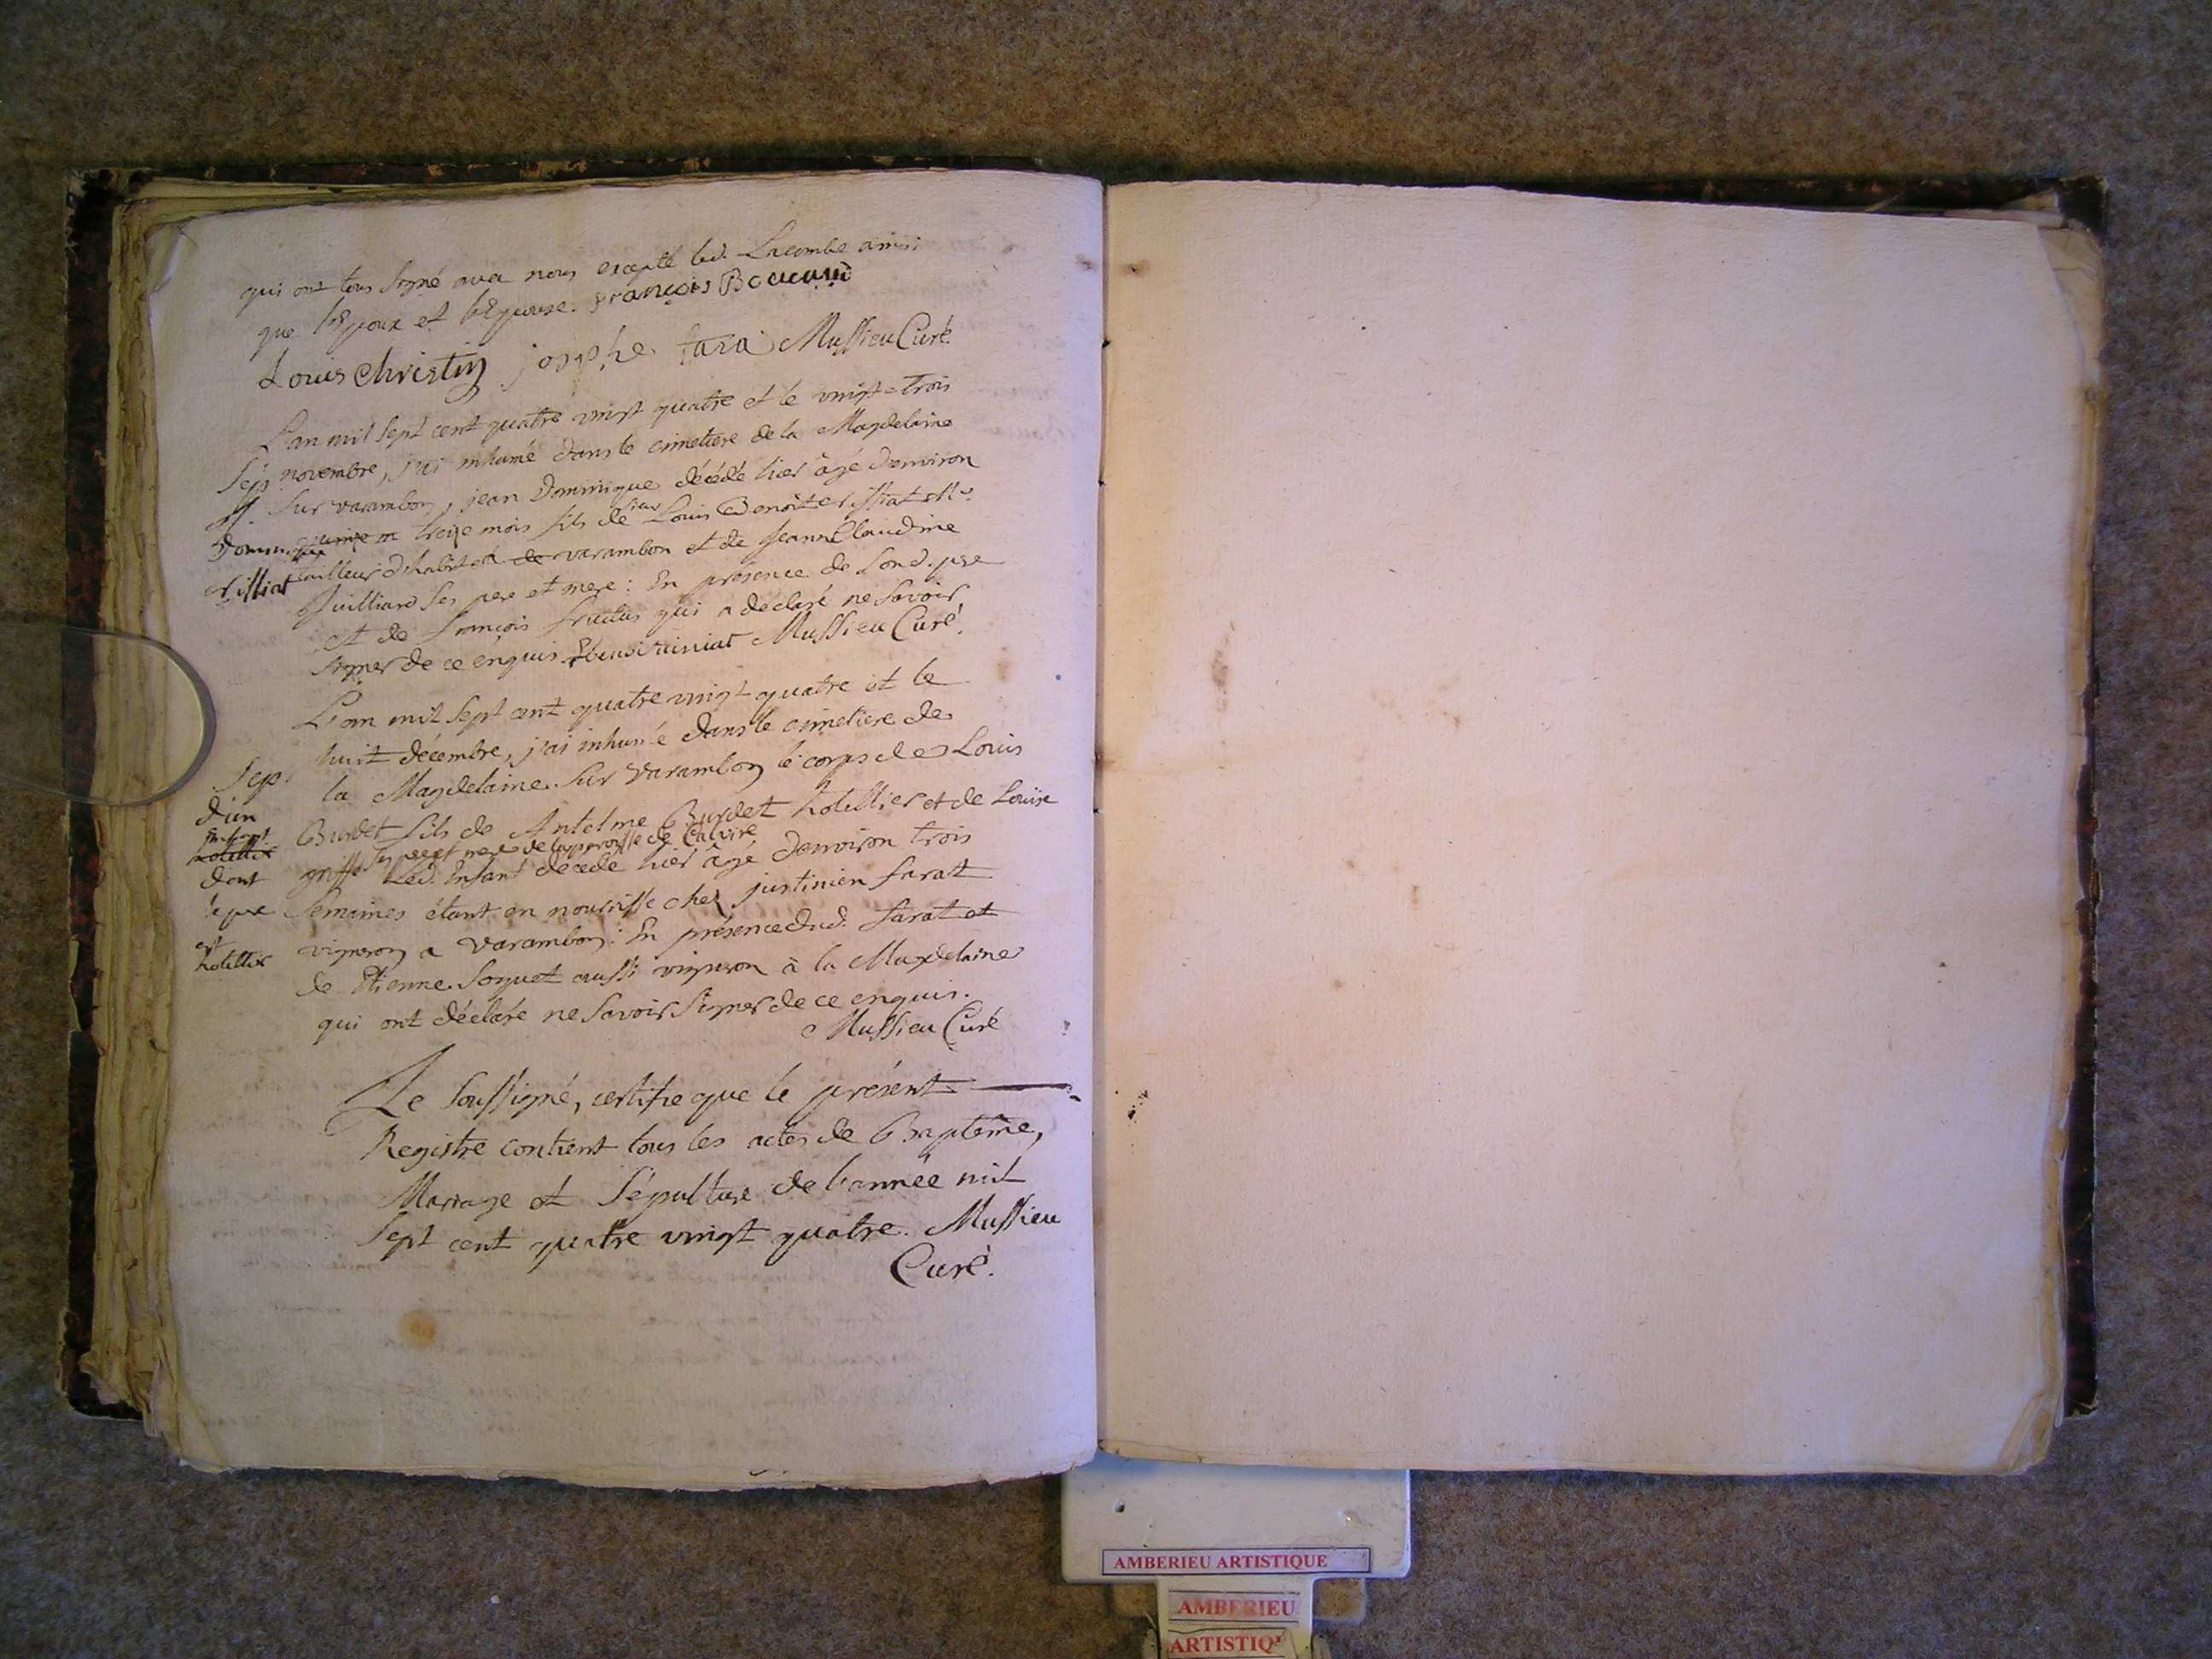 qui ont tous signé avec nous excepté led. Lacombe ainsi
que l'Epoux et l'Epouse. françois
Louis Christin josephe fara Mussieu Curé.
L'an mil sept cent quatre vingt quatre et le vingt-trois
Sep. novembre, j'ai inhumé dans le cimetiere de la Magdelaine
sur varambon, jean Dominique décédé hier âgé d'environ
Dominique treize mois fils de sieur Louis Benoit
tailleur d'habit à de varambon et de Jeanne Claudine
Juilliard ses pere et mere : En présence de son d. pere
et de françois fruitus qui a declaré ne savoir
signer de ce enquis Mussieu Curé.
L'an mil sept cent quatre vingt quatre et le
huit décembre, j'ai inhumé dans le cimetiere de
Sep. la Magdelaine sur varambon le corps de Louis
d'un
enfant Burdet fils de Antelme Burdet hotellier et de Louise
ses pere et mere de la paroisse de Caluire
hotellier
dont griffe Led. Enfant décédé hier âgé d'environ trois
le pere semaines étant en nourrisse chez justinien farat
est vigneron a varambon : En présence dud. farat et
hotellier
de Etienne Soquet aussi vigneron à la Magdelaine
qui ont déclaré ne savoir signer de ce enquis.
Mussieu Curé
Je soussigné, certifie que le présent
Registre contient tous les actes de Baptême,
Mariage et Sépulture de l'année mil
sept cent quatre vingt quatre. Mussieu
Curé.
AMBERIEU ARTISTIQUE
AMBERIEU
ARTISTIQ